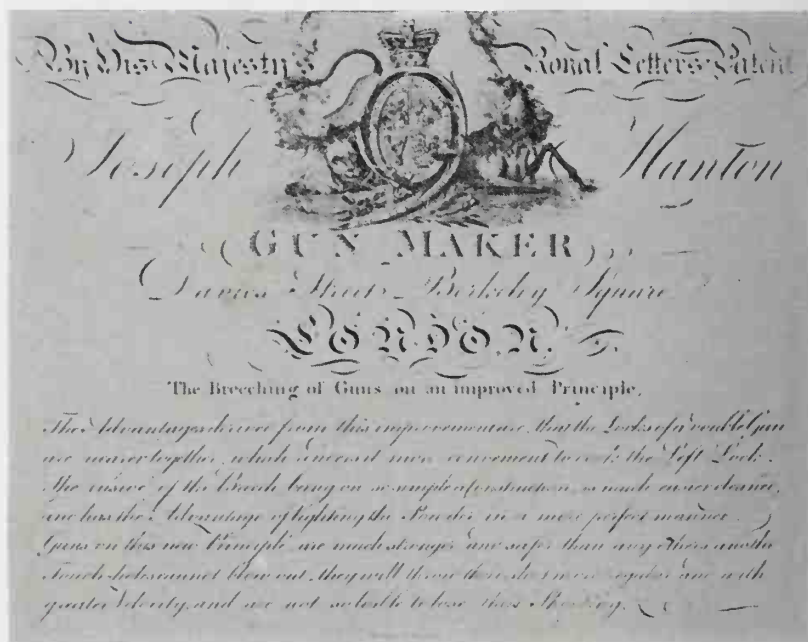 By His Majesty's Royal Letters Patent
Joseph Manton
GUN MAKER
Davies Street Berkeley Square
LONDON.
The Breeching of Guns on an improved Principle.
The Advantages derive from this improvement are, that the Locks of a double Gun
are nearer together, which renders it more convenient to cock the Left Lock.
The inside of the Breech being on so simple a Construction, is much easier cleaned,
and has the Advantage of lighting the Powder in a more perfect manner.
Guns on this new Principle are much stronger and safer than any others and the
Touch-holes cannot blow out, they will throw their shot more regular and with
greater Velocity, and are not so liable to lose their Shooting.